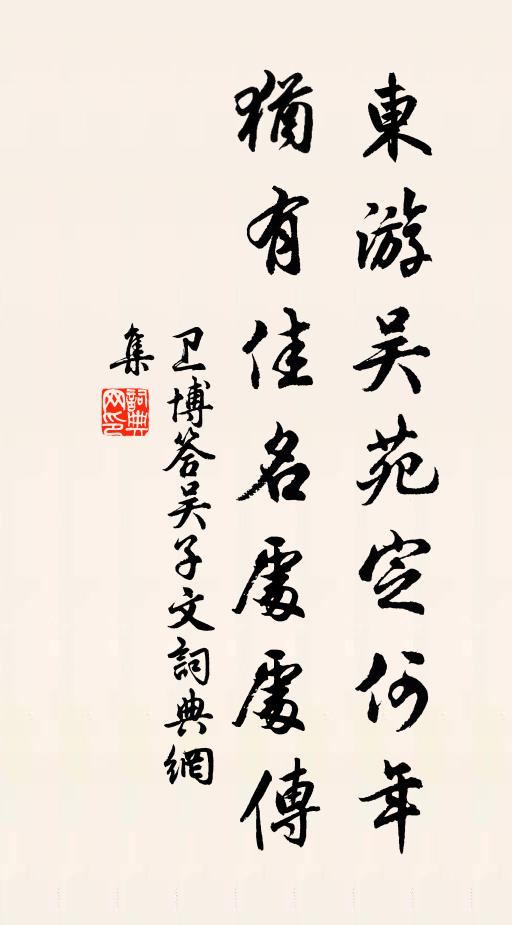 東游吴苑定何年
猶有佳名處處傳
卫博答吴子文詞典網
集
詞典
网印